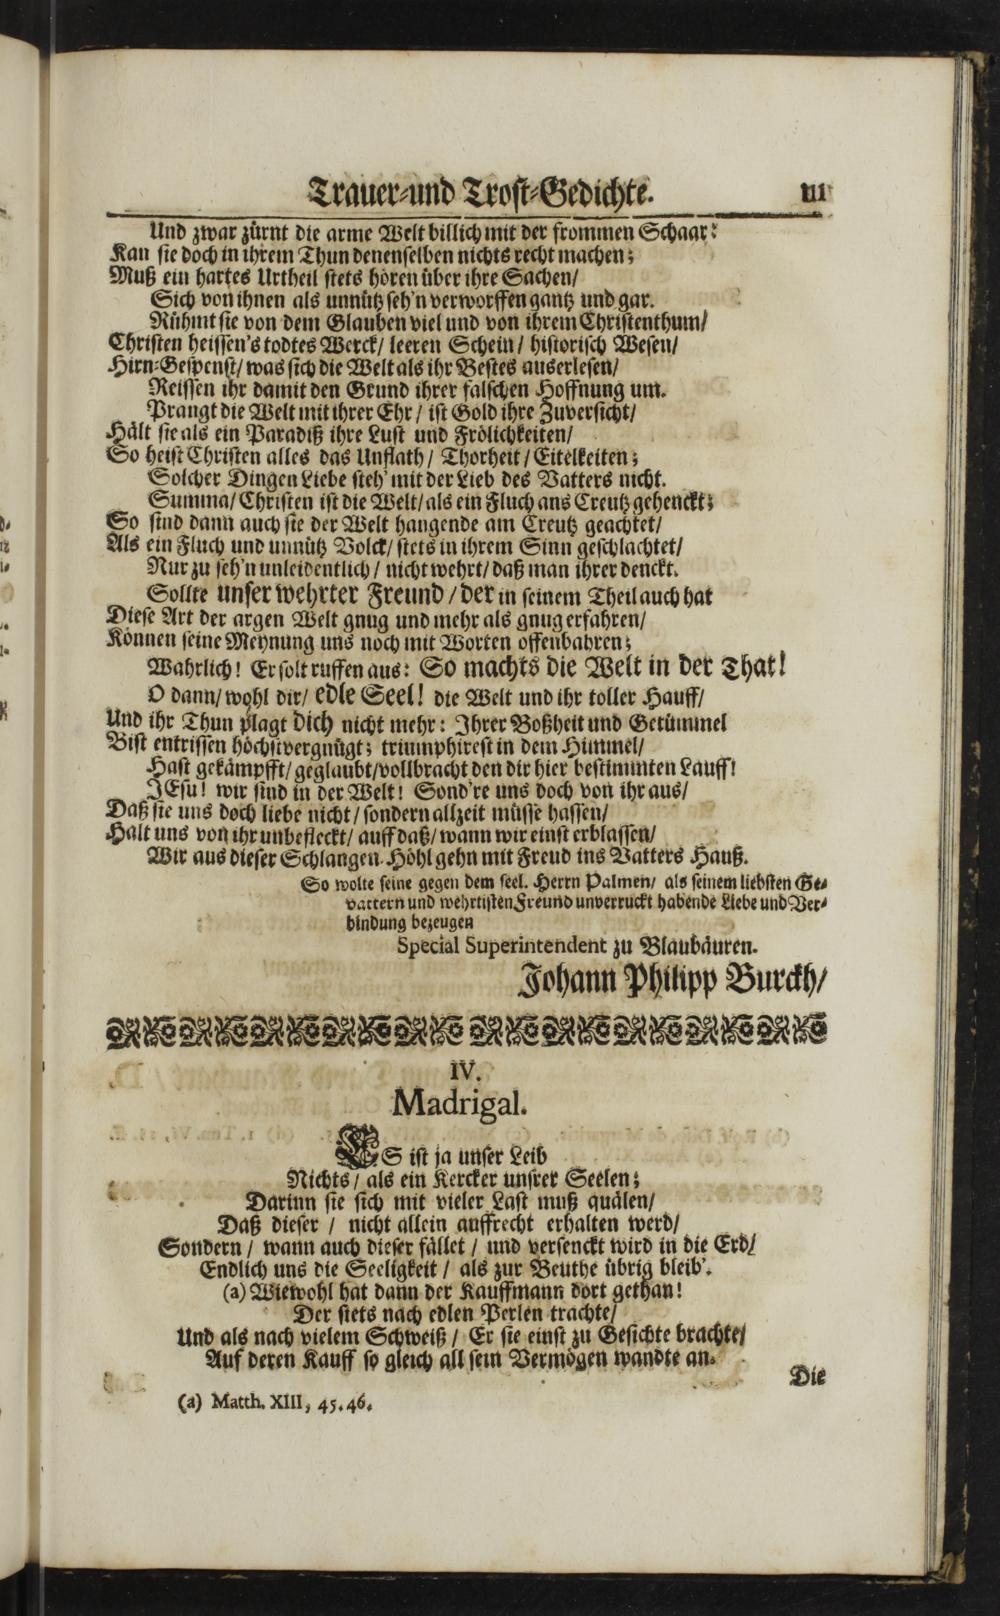 Trauer-und Trost-Gedichte. 111
Und zwar zürnt die arme Welt billich mit der frommen Schaar:
Kan sie doch in ihrem Thun denenselben nichts recht machen;
Muß ein hartes Urtheil stets hören über ihre Sachen/
Sich von ihnen als unnütz seh'n verworffen gantz und gar.
Rühmt sie von dem Glauben viel und von ihrem Christenthum/
Christen heissen's todtes Werck/ leeren Schein/ historisch Wesen/
Hirn-Gespenst/ was sich die Welt als ihr Bestes auserlesen/
Reissen ihr damit den Grund ihrer falschen Hoffnung um.
Prangt die Welt mit ihrer Ehr/ ist Gold ihre Zuversicht/
Hält sie als ein Paradiß ihre Lust und Frölichkeiten/
So heist Christen alles das Unflath/ Thorheit/ Eitelkeiten;
Solcher Dingen Liebe steh' mit der Lieb des Vatters nicht.
Summa/ Christen ist die Welt/ als ein Fluch ans Creutz gehenckt;
So sind dann auch sie der Welt hangende am Creutz geachtet/
Als ein Fluch und unnütz Volck/ stets in ihrem Sinn geschlachtet/
Nur zu seh'n unleidentlich/ nicht wehrt/ daß man ihrer denckt.
Sollte unser wehrter Freund/ der in seinem Theil auch hat
Diese Art der argen Welt gnug und mehr als gnug erfahren/
Können seine Meynung uns noch mit Worten offenbahren;
Wahrlich! Er solt ruffen aus: So machts die Welt in der That!
O dann/ wohl dir/ edle Seel! die Welt und ihr toller Hauff/
Und ihr Thun plagt dich nicht mehr: Ihrer Boßheit und Getümmel
Bist entrissen höchstvergnügt; triumphirest in dem Himmel/
Hast gekämpfft/ geglaubt/ vollbracht den dir hier bestimmten Lauff!
JEsu! wir sind in der Welt! Sond're uns doch von ihr aus/
Daß sie uns doch liebe nicht/ sondern allzeit müsse hassen/
Halt uns von ihr unbefleckt/ auff daß/ wann wir einst erblassen/
Wir aus dieser Schlangen-Höhl gehn mit Freud ins Vatters Hauß.
So wolte seine gegen dem seel. Herrn Palmen/ als seinem liebsten Ge-
vattern und wehrtisten Freund unverruckt habende Liebe und Ver-
bindung bezeugen
Special Superintendent zu Blaubäuren.
Johann Philipp Burckh/
IV.
Madrigal.
ES ist ja unser Leib
Nichts/ als ein Kercker unsrer Seelen;
Darinn sie sich mit vieler Last muß quälen/
Daß dieser/ nicht allein auffrecht erhalten werd/
Sondern/ wann auch dieser fället/ und versenckt wird in die Erd/
Endlich uns die Seeligkeit/ als zur Beuthe übrig bleib'.
(a) Wiewohl hat dann der Kauffmann dort gethan!
Der stets nach edlen Perlen trachte/
Und als nach vielem Schweiß/ Er sie einst zu Gesichte brachte/
Auf deren Kauff so gleich all sein Vermögen wandte an.
Die
(a) Matth. XIII, 45. 46.